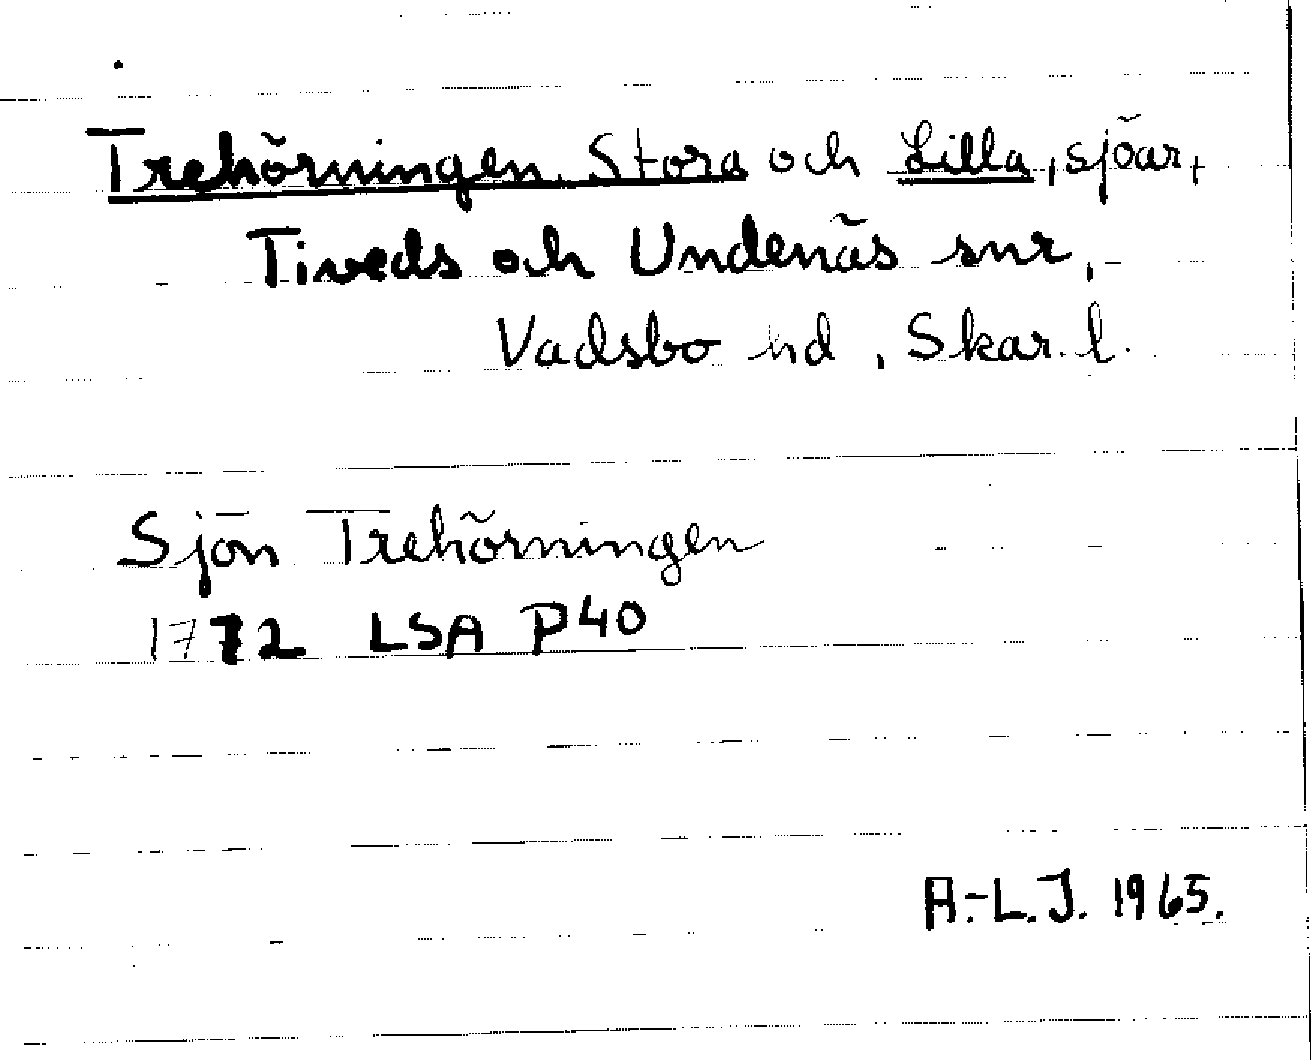 Trehörningen, Stora och Lilla, sjöar,
Tiveds och Undenäs snr,
Vadsbo hd, Skar. l.
Sjön Trehörningen
1772 LSA P40
A.-L.J. 1965.